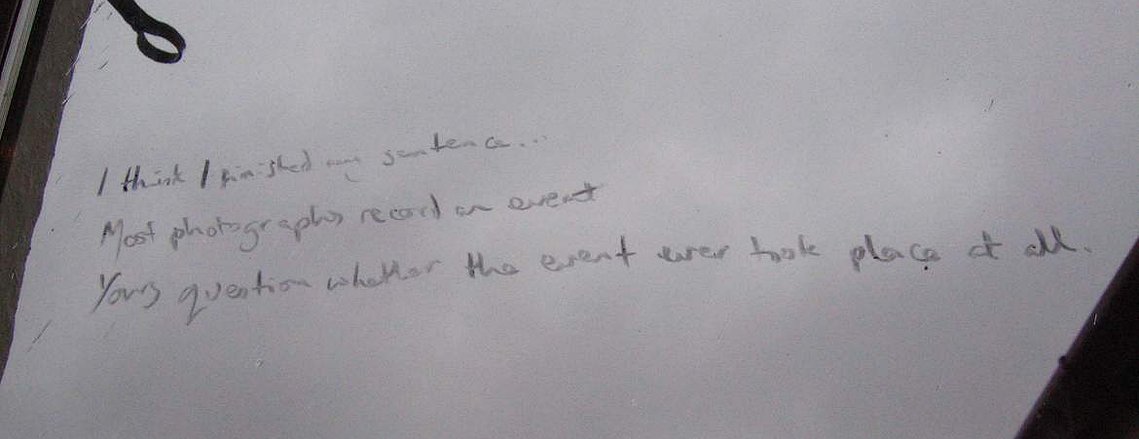 I think I finished my sentence...
Most photographs record an event
Yours question whether the event ever took place at all.